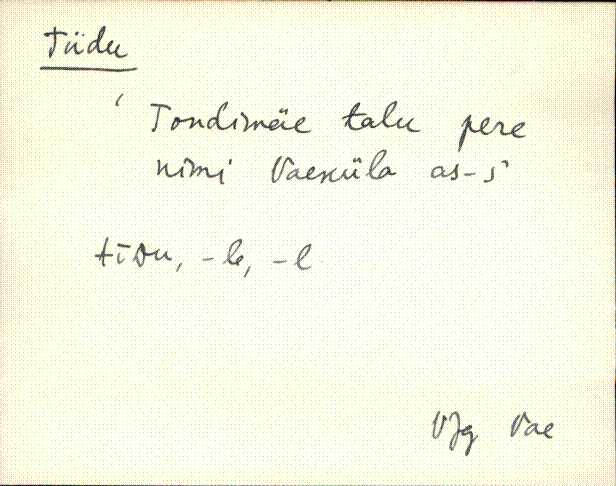 Tiidu
‘ Tondimäe talu pere
nimi Vaeküla as-s’
tīDu, -le, -l
VJg Vae